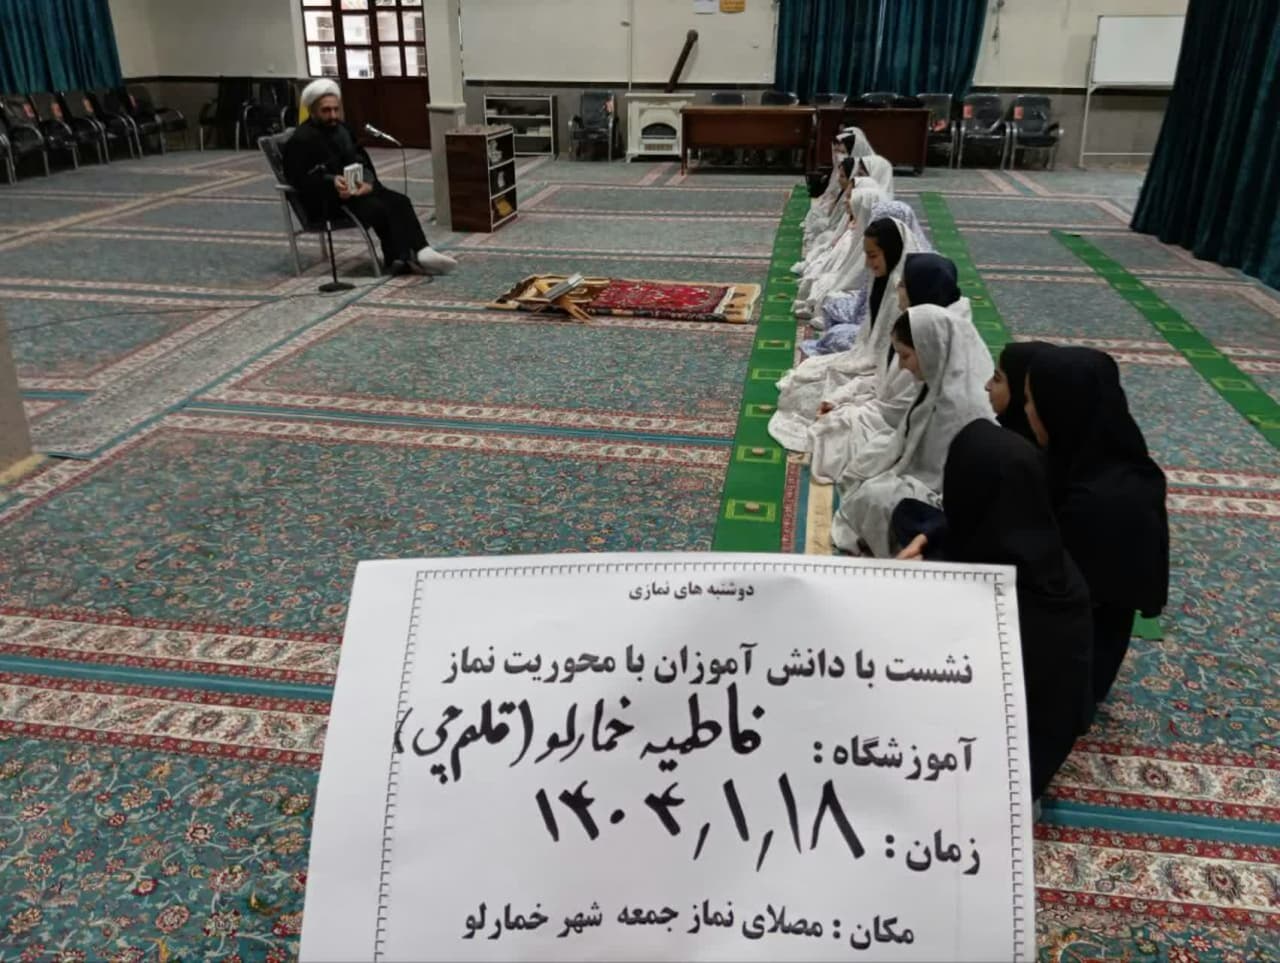 دوشنبه های نمازی
نشست با دانش آموزان با محوریت نماز
آموزشگاه : فاطمیه خمارلو (قلم چی)
زمان : ۱۴۰۴/۱/۱۸
مکان : مصلای نماز جمعه شهر خمارلو